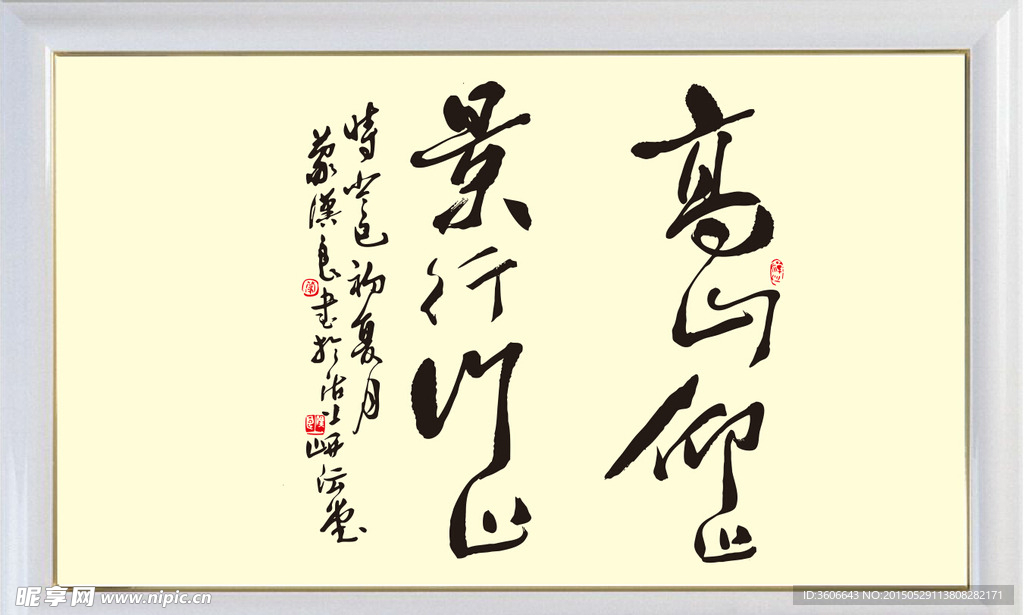 高山仰止
景行行止
時癸巳初夏月
漢良書於沽上
昵享网 www.nipic.cn
ID:3606643 NO:20150529113808282171